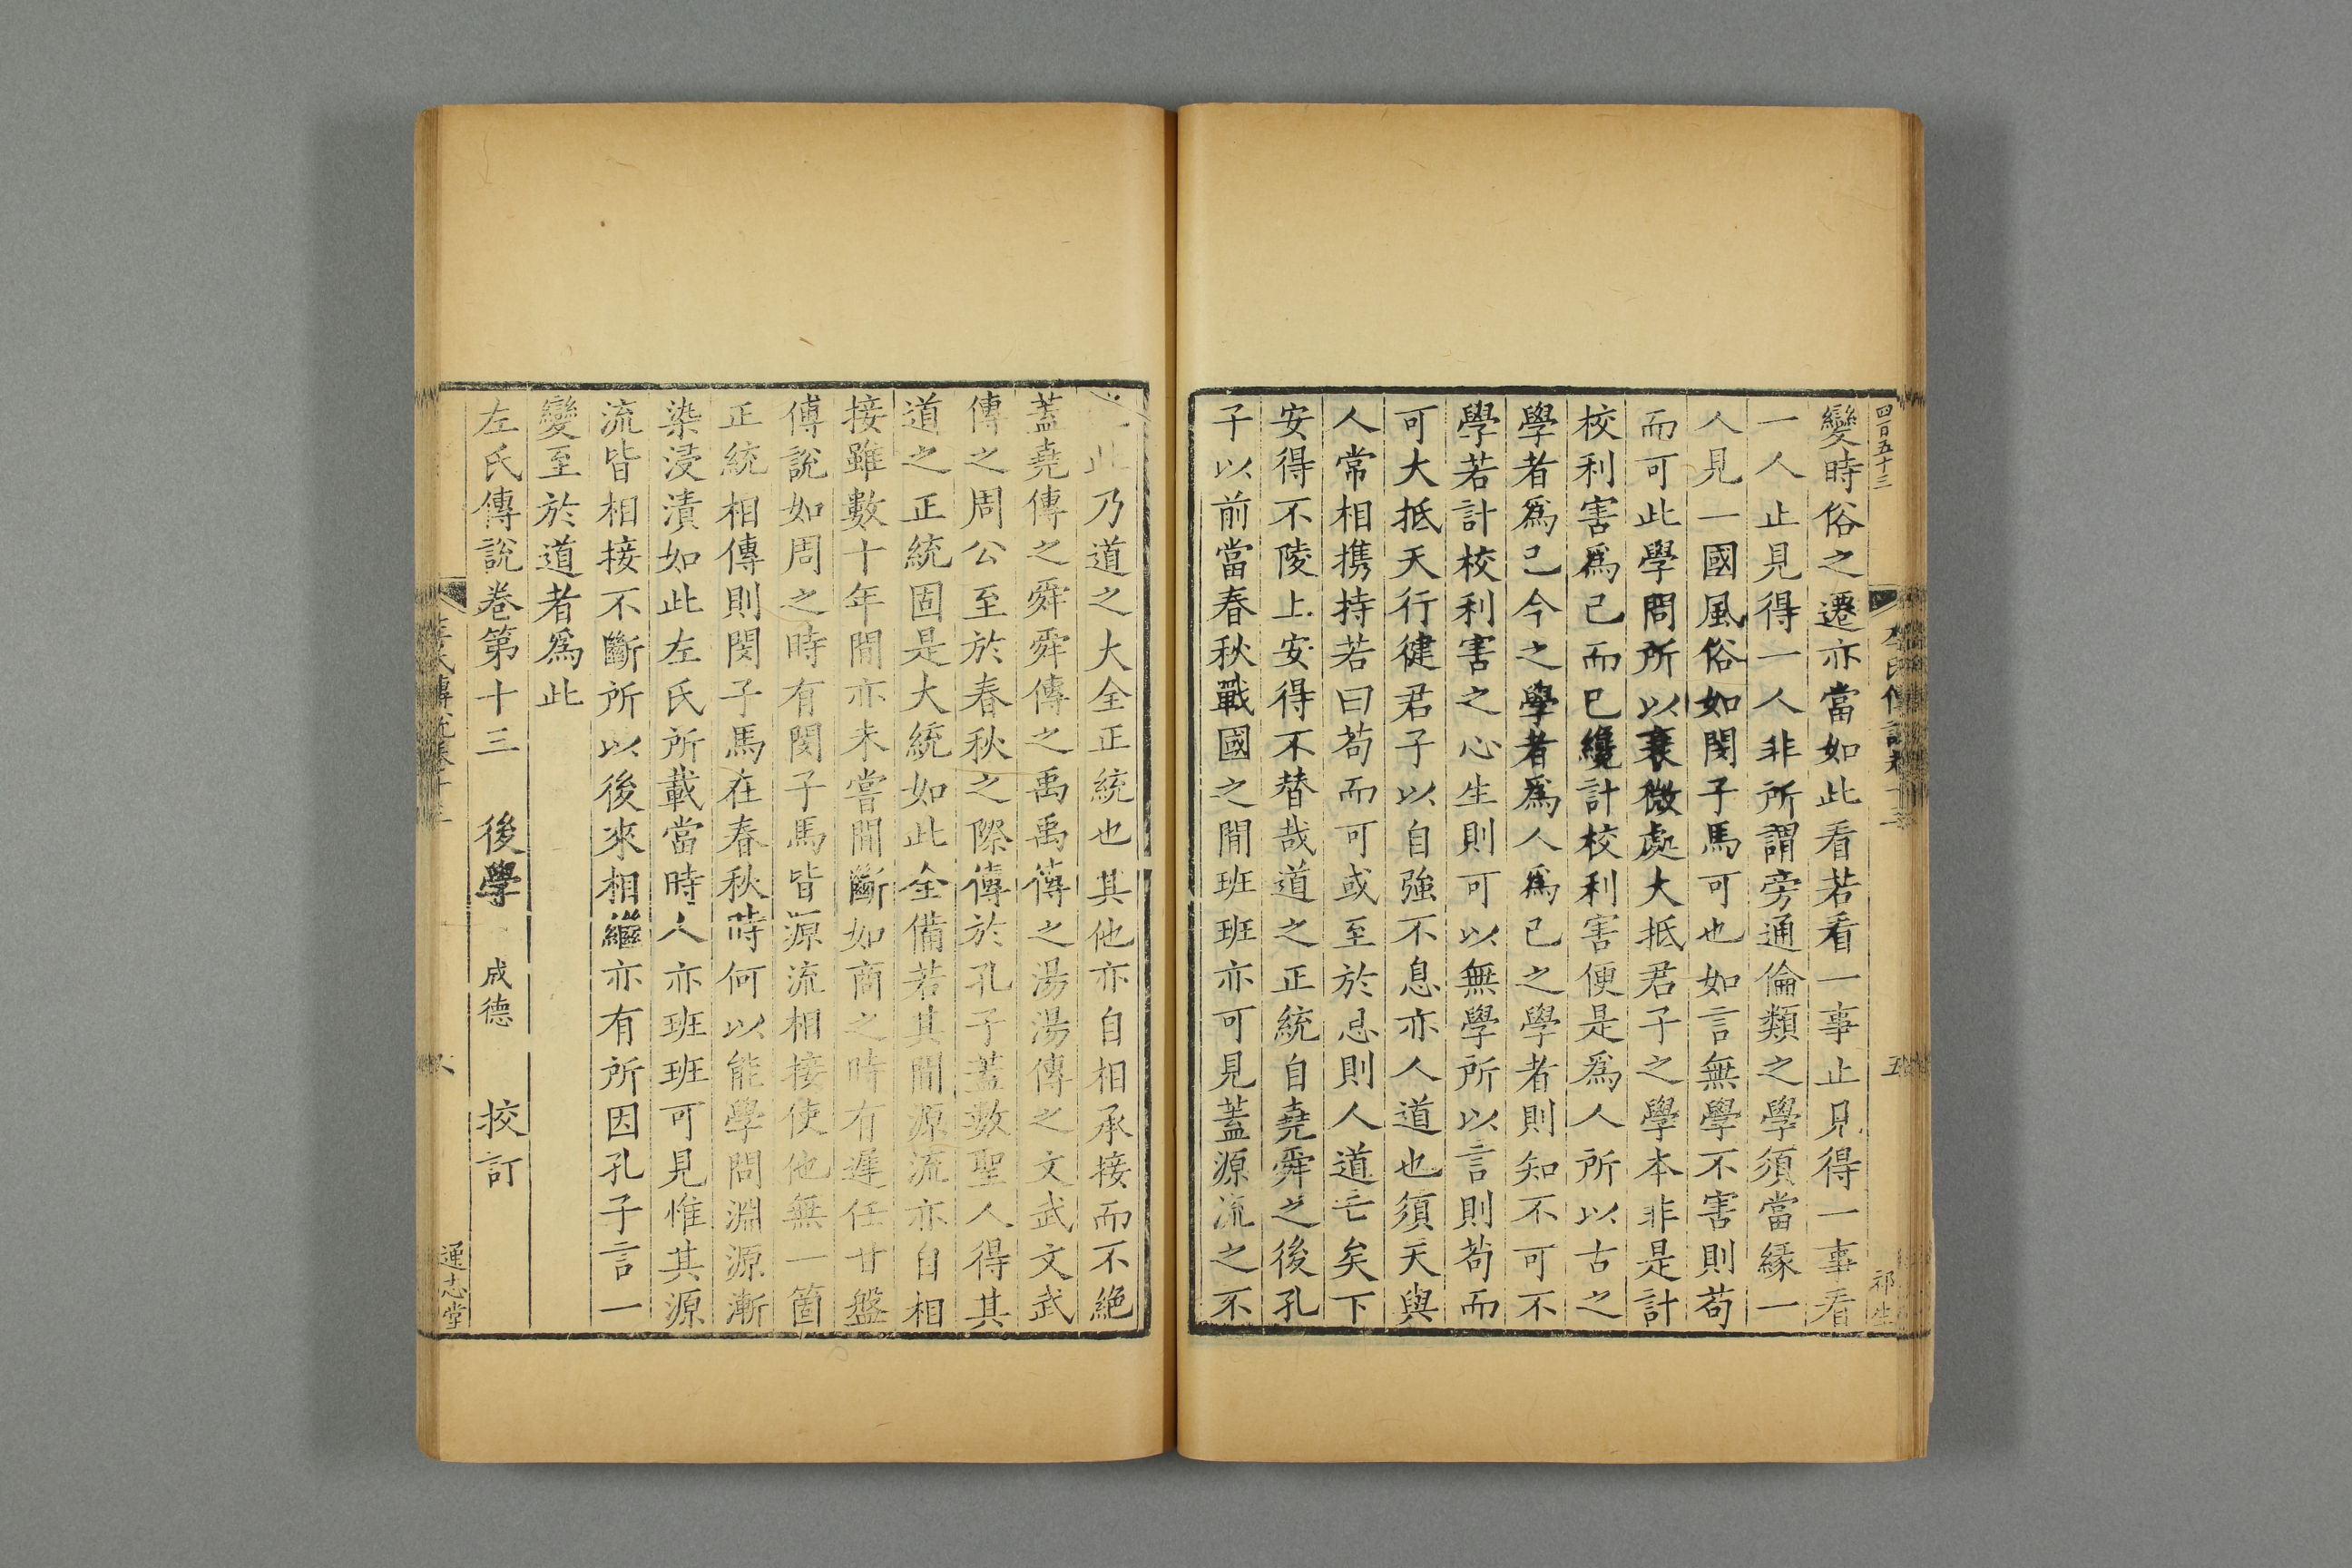 四百五十三
變時俗之遷亦當如此看若看一事止見得一事看
一人止見得一人非所謂旁通倫類之學須當緣一
人見一國風俗如閔子馬可也如言無學不害則苟
而可此學問所以衰微處大抵君子之學本非是計
校利害爲己而已纔計校利害便是爲人所以古之
學者爲己今之學者爲人爲己之學者則知不可不
學若計校利害之心生則可以無學所以言則苟而
可大抵天行健君子以自強不息亦人道也須天與
人常相携持若曰苟而可或至於忌則人道亡矣下
安得不陵上安得不替哉道之正統自堯舜之後孔
子以前當春秋戰國之間班班亦可見蓋源流之不
此乃道之大全正統也其他亦自相承接而不絕
蓋堯傳之舜舜傳之禹禹傳之湯湯傳之文武文武
傳之周公至於春秋之際傳於孔子蓋數聖人得其
道之正統固是大統如此全備若其間源流亦自相
接雖數十年間亦未嘗間斷如商之時有遲任甘盤
傅說如周之時有閔子馬皆源流相接使他無一箇
正統相傳則閔子馬在春秋時何以能學問淵源漸
染浸漬如此左氏所載當時人亦班班可見惟其源
流皆相接不斷所以後來相繼亦有所因孔子言一
變至於道者爲此
左氏傳說卷第十三 後學 成德 校訂
通志堂
左氏傳說卷十三
五
祁生